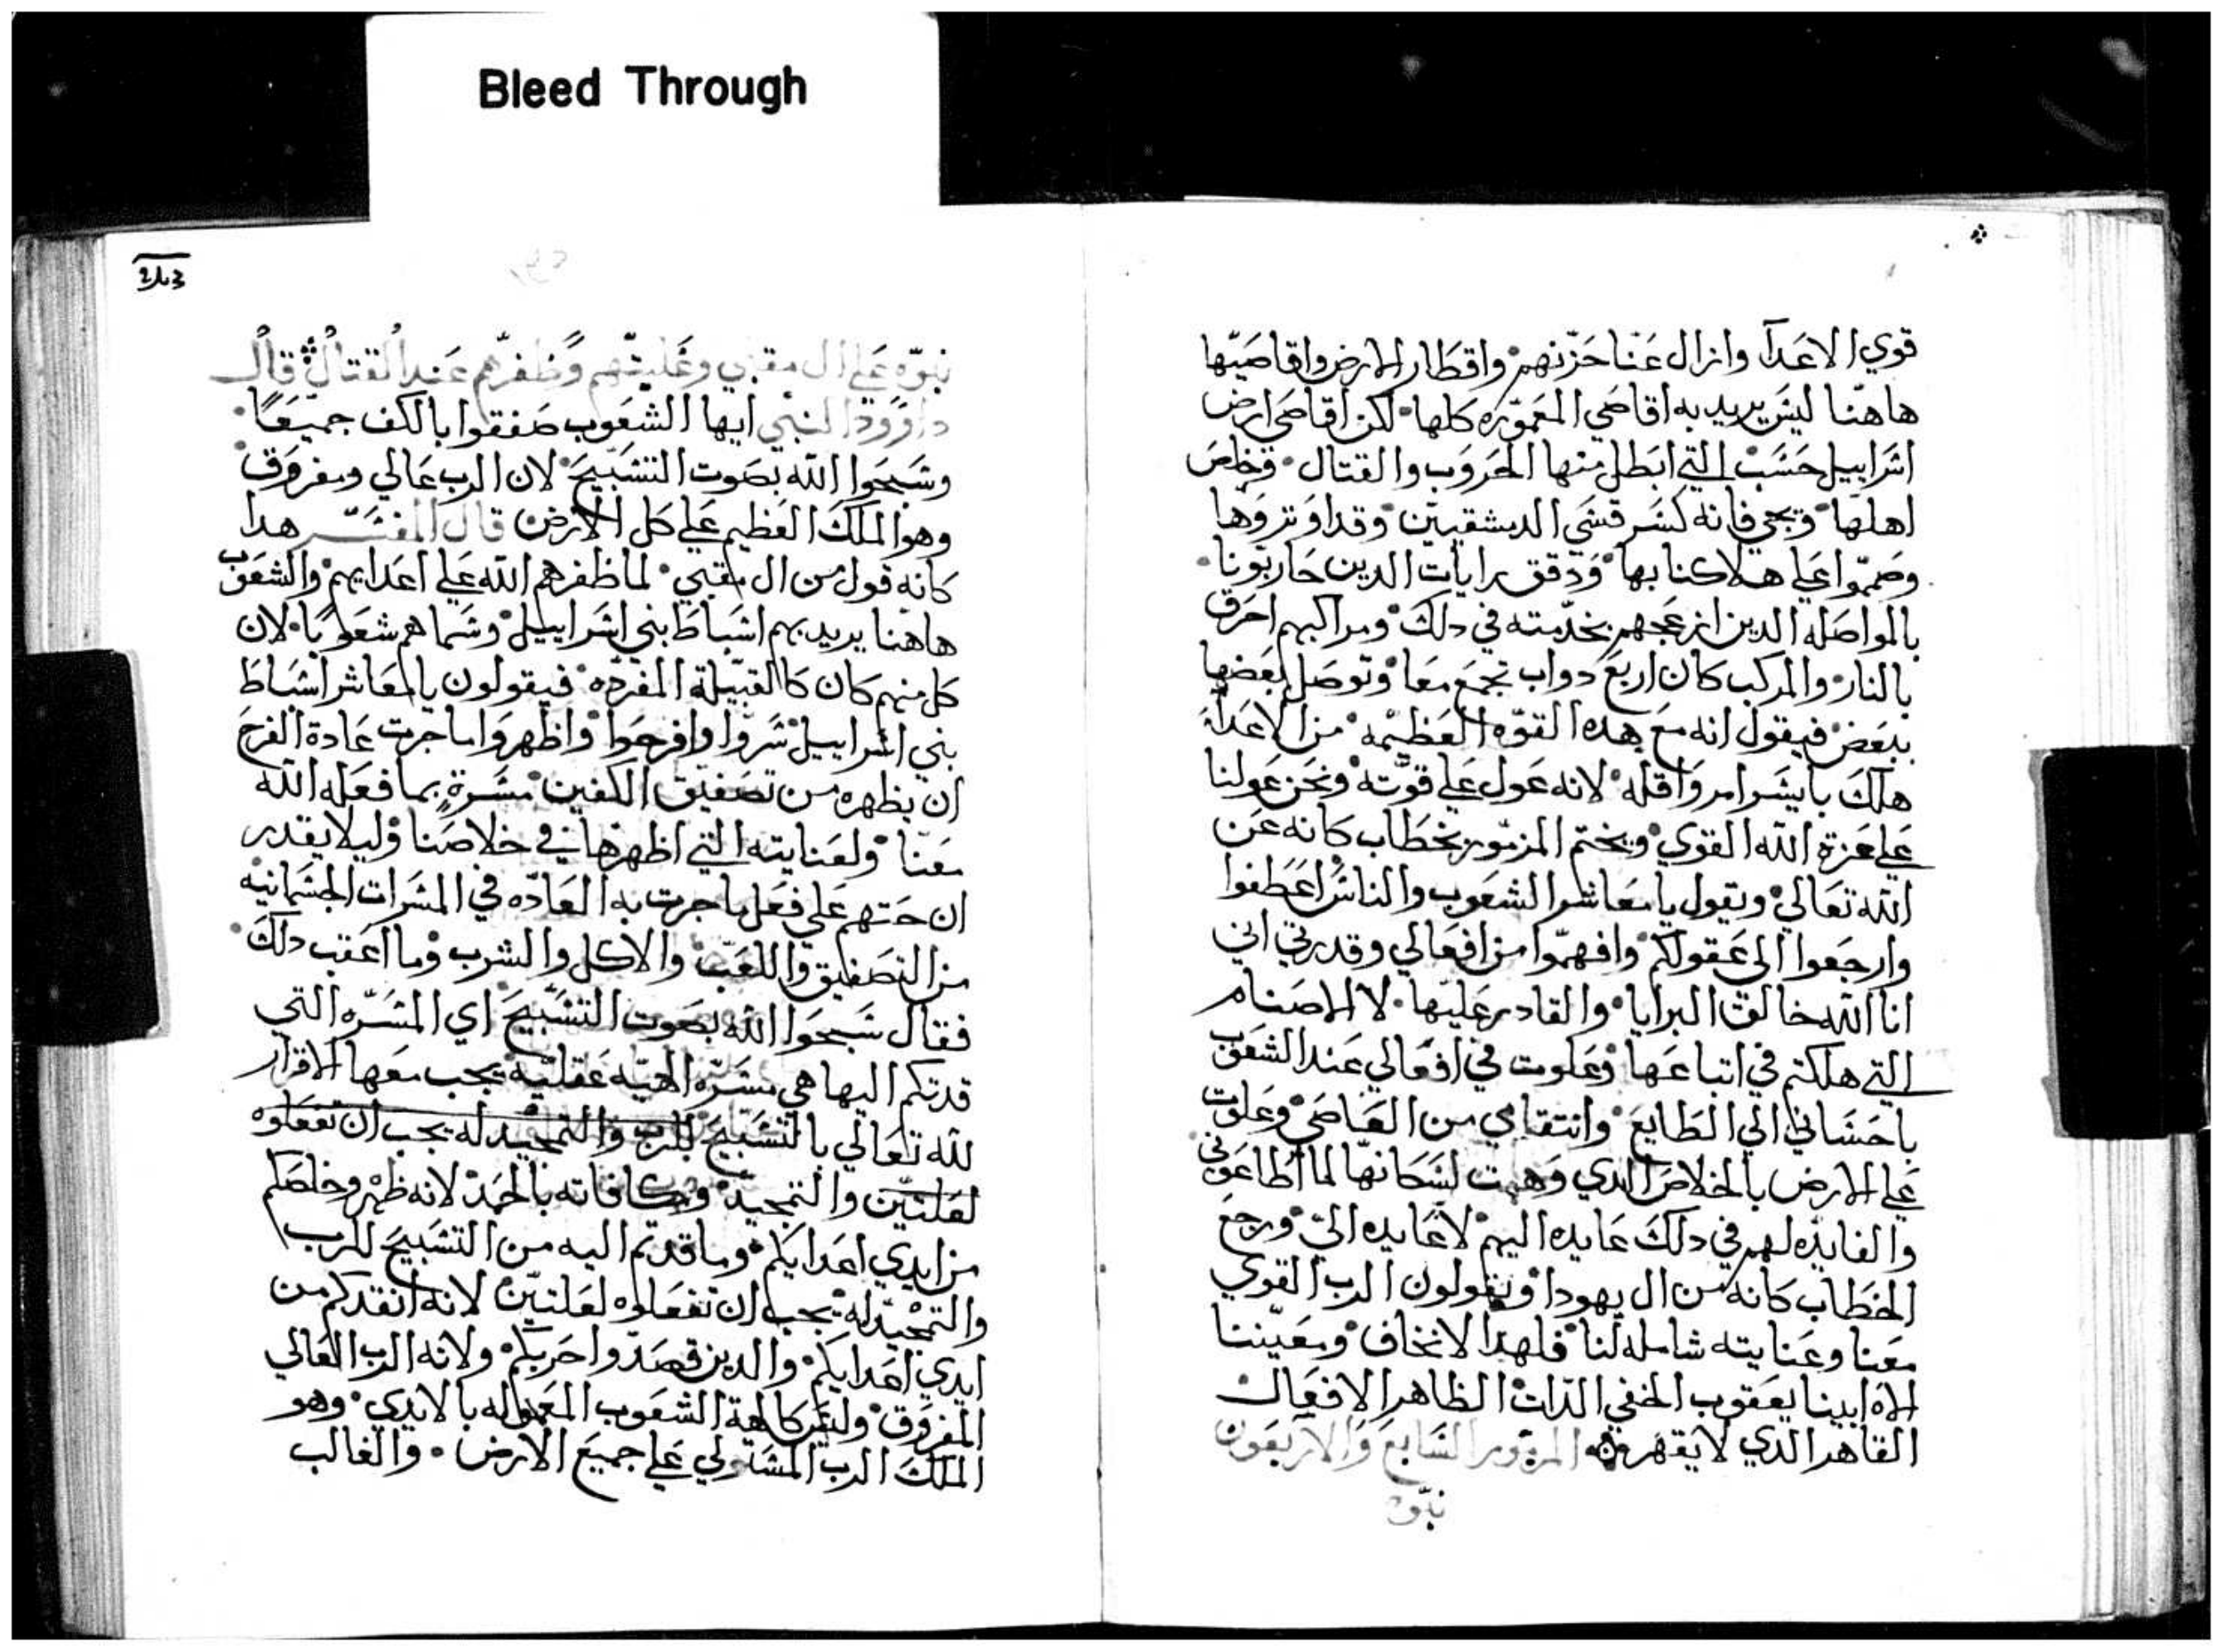 Bleed Through
قوي الاعدآ وازال عنا حزنهم واقطار الارض واقاصيها
هاهنا ليس يريد به اقاصي المعموره كلها لكن اقاصي ارض
اسراييل حسب التي ابطل منها الحروب والقتال وخلص
اهلها ونجي فانه كسر قسي الدمشقيين وقد اوتروها
وصمموا على هلاكنا بها ودقق رايات الدين حاربونا
بالمواصله الدين ازعجهم بخدمته في دلك ومراكبهم احرق
بالنار والمركب كان اربع دواب تجمع معا وتوصل بعضها
ببعض فيقول انه مع هده القوه العظيمه من الاعدآ
هلك بايسر امر واقله لانه عول على قوته ونحن عولنا
على عزة الله القوي ويختم المزمور بخطاب كانه عن
الله تعالي ويقول يا معاشر الشعوب والناس اعطفوا
وارجعوا الى عقولكم وافهموا من افعالي وقدرتي اني
انا الله خالق البرايا والقادر عليها لا الاصنام
التي هلكتم في اتباعها وعلوت في افعالي عند الشعوب
باحساني الي الطايع وانتقامي من العاصي وعلوت
على الارض بالخلاص الدي وهبت لسكانها لما اطاعوني
والفايده لهم في دلك عايده اليهم لا عايده الي ورجع
الخطاب كانه من ال يهودا ويقولون الرب القوي
معنا وعنايته شامله لنا فلهدا لا نخاف ومعيننا
الاه ابينا يعقوب الخفي الدات الظاهر الافعال
القاهر الدي لا يقهر المزمور السابع والاربعون
نبوه
243
نبوه على ال مقبي وغلبتهم وظفرهم عند القتال قال
داوود النبي ايها الشعوب صفقوا بالكف جميعا
وسبحوا الله بصوت التسبيح لان الرب عالي ومفروق
وهو الملك العظيم على كل الارض قال المفسر هدا
كانه قول من ال مقبي لما ظفرهم الله على اعدايهم والشعوب
هاهنا يريد بهم اسباط بني اسراييل وسماهم شعوبا لان
كل منهم كان كالقبيلة المفرده فيقولون يا معاشر اسباط
بني اسراييل سروا وافرحوا واظهروا ما جرت عادة الفرح
ان يظهره من تصفيق الكفين مسرة بما فعله الله
معنا ولعنايته التي اظهرها في خلاصنا وليلا يقدر
ان حتهم على فعل ما جرت به العاده في المسرات الجسمانيه
من التصفيق واللعب والاكل والشرب وما اعقب دلك
فقال سبحوا الله بصوت التسبيح اي المسره التي
قدتكم اليها هي مسره الهيه عقليه يجب معها الاقرار
لله تعالي بالتسبيح للرب والتمجيد له يجب ان تفعلوه
لعلتين والتمجيد ومكافاته بالحمد لانه ظهر وخلصكم
من ايدي اعدايكم وما قدتم اليه من التسبيح للرب
والتمجيد له يجب ان تفعلوه لعلتين لانه انقدكم من
ايدي اعدايكم والدين قصدوا حربكم ولانه الرب العالي
المفروق وليس كالهة الشعوب المعموله بالايدي وهو
الملك الرب المستولي على جميع الارض والغالب